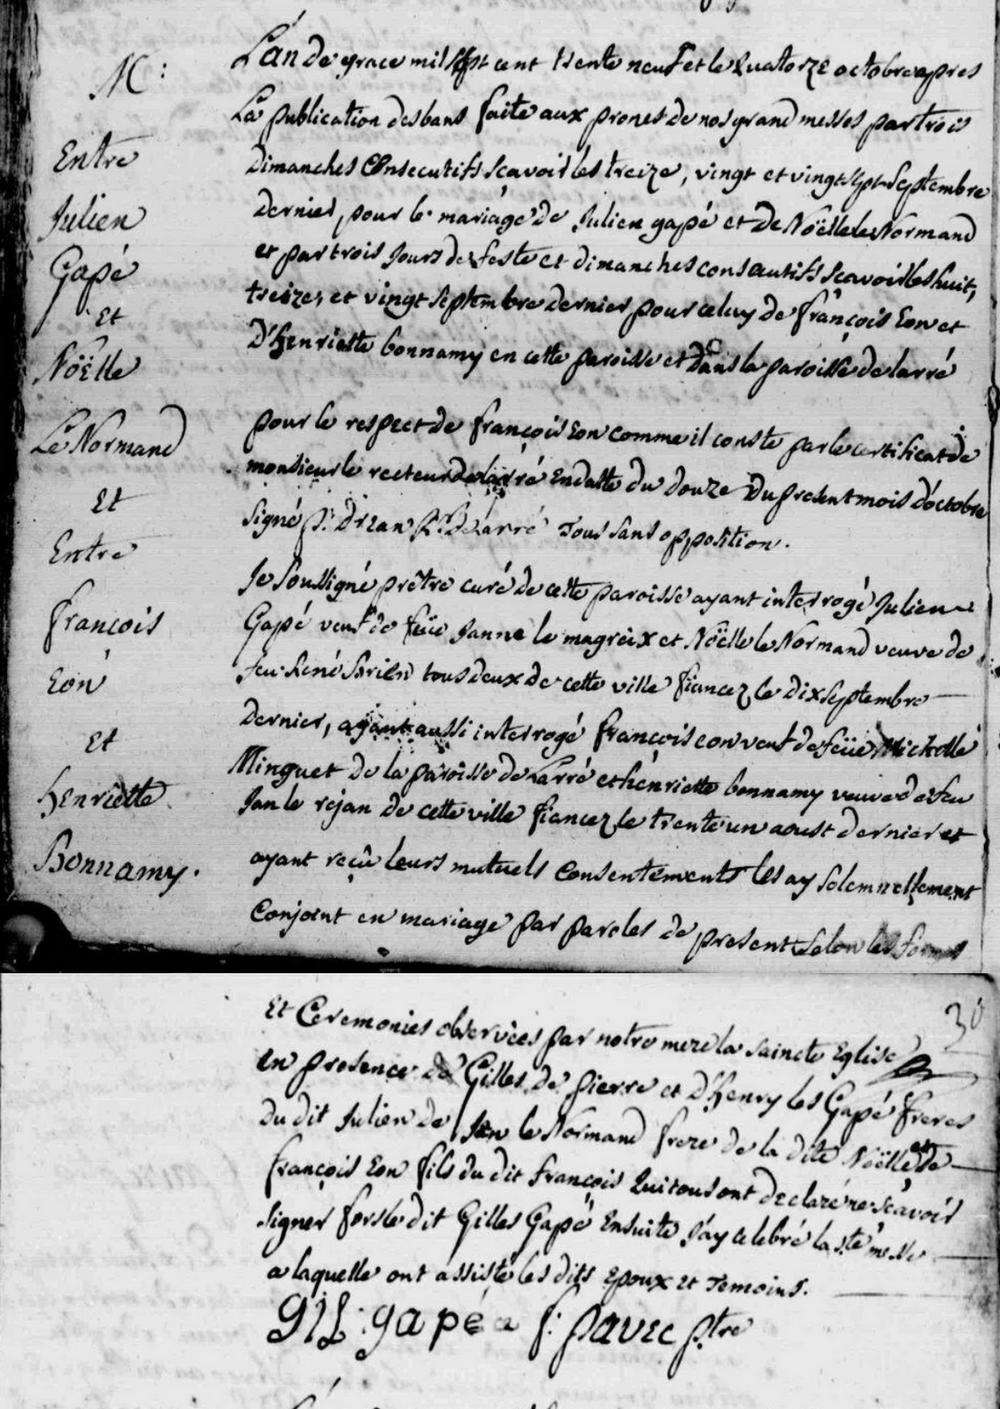 M:
Entre
Julien
Gapé
et
Noëlle
Le Normand
et
Entre
françois
Eon
et
henriette
Bonnamy.
L'an de grace mil sept cent trente neuf et le quatorze octobre apres
La publication des bans faite aux prones de nos grand messes par trois
Dimanches Consecutifs scavoir les treize, vingt et vingt sept septembre
dernier, pour le mariage de Julien gapé et de Noëlle le Normand
et par trois Jours de feste et dimanches consecutifs scavoir les huit,
treize, et vingt septembre dernier pour celuy de françois Eon et
D'henriette bonnamy en cette paroisse et dans la paroisse de larré
pour le respect de françois Eon comme il conste par le certificat de
monsieur le recteur de larré en datte du douze du present mois d'octobre
signé Drean de Larré Tous sans opposition.
Je soussigné prêtre curé de cette paroisse ayant interrogé Julien
Gapé veuf de feüe Janne le magreix et Noëlle le Normand veuve de
feu René Brien tous deux de cette ville fiancez le dix septembre
dernier, ayant aussi interrogé françois eon veuf de feüe Michelle
Minguet de la paroisse de Larré et henriette bonnamy veuve de feu
Jan le rejan de cette ville fiancez le trente un aoust dernier et
ayant reçû leurs mutuels consentements les ay solemnellement
Conjoint en mariage par paroles de present selon les formes
30
Et Ceremonies observées par notre mere la saincte Eglise
en presence de Gilles de pierre et d'henry les Gapé freres
du dit Julien de Jan le Normand frere de la dite Noëlle et de
françois Eon fils du dit françois qui tous ont declaré ne scavoir
signer fors le dit Gilles Gapé Ensuite J'ay celebré la ste messe
a laquelle ont assisté les dits Epoux et Temoins.
gil gapé f: pavec ptre